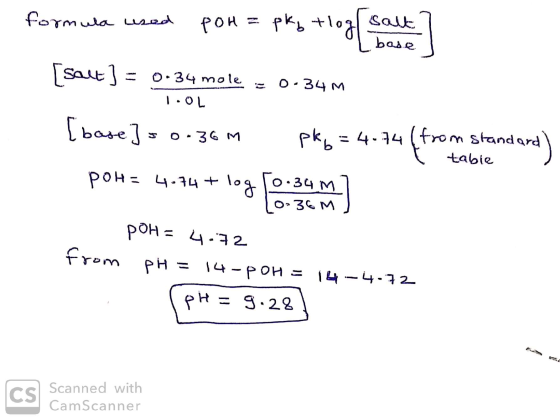 formula used pOH = pkb + log [salt/base]
[salt] = 0.34 mole/1.0L = 0.34 M
[base] = 0.36 M pkb = 4.74 (from standard table)
pOH = 4.74 + log [0.34 M/0.36 M]
pOH = 4.72
from pH = 14 - pOH = 14 - 4.72
pH = 9.28
CS Scanned with
CamScanner